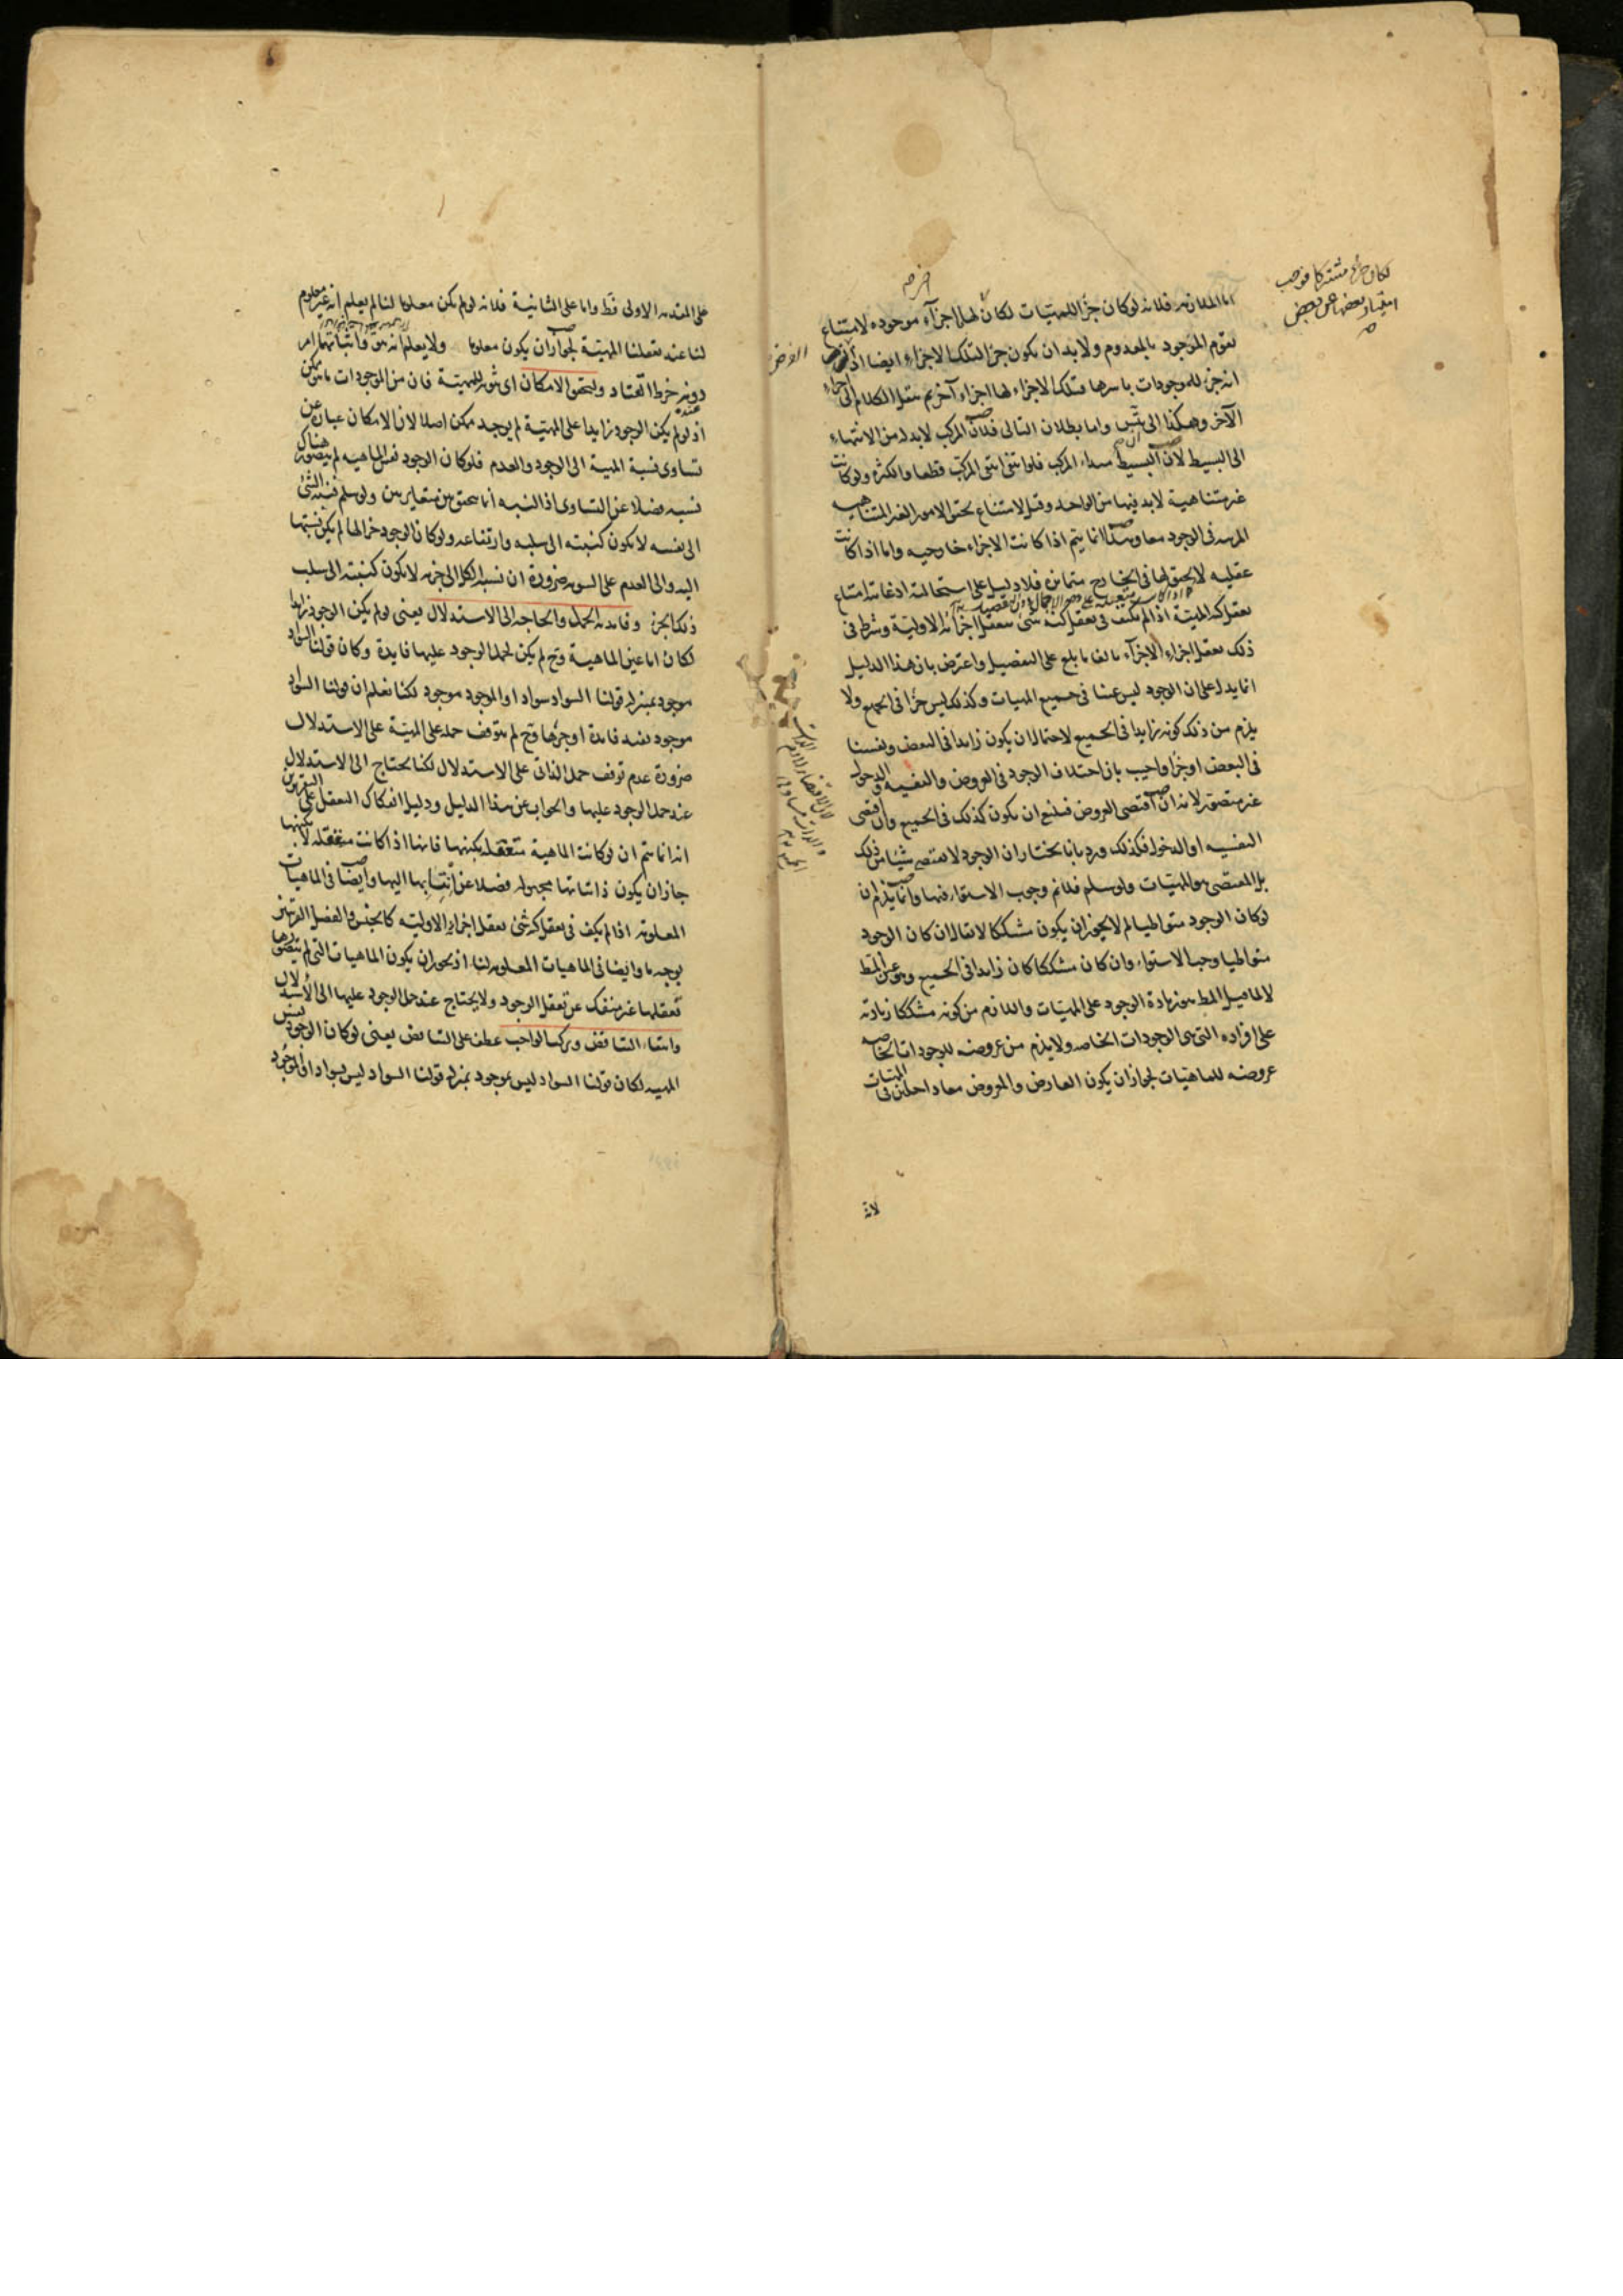 اما الملازمة فلانه لوكان جزأ للمهيّات لكان لها اجزآء موجوده لامتناع
تقوّم الموجود بالمعدوم ولا بد ان يكون جزأ لتلك الاجزاء ايضا اذ الفرض
انه جزء للموجودات باسرها فتلك الاجزاء لها اجزاء آخر ثم ننقل الكلام الى اجزاء
الآخر وهكذا الى واما بطلان التالى فلان المركب لابد له من الانتهاء
الى البسيط لان البسيط مبداء المركب فلو انتفى انتفى المركب قطعا والكثرة ولو كانت
غير متناهية لابد فيها من الواحد وقيل لامتناع تحقق الامور الغير المتناهيه
المرتبة فى الوجود معا وهذا انما يتم اذا كانت الاجزاء خارجيه واما اذا كانت
عقليه لا تحقق لها فى الخارج متمايزه فلا دليل على استحالته اذ غايته امتناع
تعقل كنه المهيّة اذا لم يكتف فى تعقل كنه شئ تعقل اجزائه الاوليّة وشرط فى
ذلك تعقل اجزاء الاجزآء بالغا ما بلغ على التفصيل واعترض بان هذا الدليل
انما يدل على ان الوجود ليس عينا فى جميع المهيات وكذلك ليس جزأ فى الجميع ولا
يلزم من ذلك كونه زايدا فى الجميع لاحتمال ان يكون زايدا فى البعض ونفسا
فى البعض او جزأ واجيب بان اختلاف الوجود فى العروض والنفسيه والدخول
غير متصوّر لانه ان اقتضى العروض فينبغى ان يكون كذلك فى الجميع وان اقتضى
النفسيه او الدخول فكذلك وردّ بانا نختار ان الوجود لا يقتضى شيئا من ذلك
بل المقتضى هو المهيّات ولو سلم فلا نم وجوب الاستواء فيها وانما يلزم ان
لوكان الوجود متواطيا لم لا يجوز ان يكون مشككا لا يقال ان كان الوجود
متواطيا وجب الاستواء وان كان مشككا كان زايدا فى الجميع وهو عين المط
لانا نقول المط هو زيادة الوجود على المهيّات واللازم من كونه مشككا زيادته
على افراده التى هى الوجودات الخاصه ولا يلزم من عروضه للوجودات الخاصه
عروضه للماهيّات لجواز ان يكون العارض والمعروض معا داخلين فى المهيّات
لكان جزأ مشتركا فوجب
امتياز بعضها عن بعض
الفرض
لانه
على المقدمه الاولى فقط واما على الثانية فلانه لو لم يكن معلوما لنا لم يعلم انه غير معلوم
لنا عند تعقلنا المهيّة لجواز ان يكون معلوما ولا يعلم انه هو واثباتهما امر
دونه خرط القتاد ولتحقق الامكان اى ثبوته للمهيّة فان من الموجودات ما هو ممكن
اذ لو لم يكن الوجود زايدا على المهيّة لم يوجد ممكن اصلا لان الامكان عبارة عن
تساوى نسبة المهية الى الوجود والعدم فلو كان الوجود نفس الماهيه لم يتصور هناك
نسبه فضلا عن التساوى اذ النسبه انما تتحقق بين متغايرين ولو سلم فنسبة الشئ
الى نفسه لا يكون كنسبته الى سلبه وارتفاعه ولو كان الوجود جزأ لها لم يكن نسبتها
اليه والى العدم على السويه ضرورة ان نسبة الكل الى جزئه لا يكون كنسبته الى سلب
ذلك الجزء وفائدة الحمل والحاجه الى الاستدلال يعنى لو لم يكن الوجود زايدا
لكان اما عين الماهية وح لم يكن لحمل الوجود عليها فايدة وكان قولنا السواد
موجود بمنزله قولنا السواد سواد او الموجود موجود لكنا نعلم ان قولنا السواد
موجود يفيد فائدة او جزئها وح لم يتوقف حمله على المهيّة على الاستدلال
ضرورة عدم توقف حمل الذاتى على الاستدلال لكنا نحتاج الى الاستدلال
عند حمل الوجود عليها والجواب عن هذا الدليل ودليل انفكاك التعقل على التقريرين
انه انما يتم ان لو كانت الماهية متعقله بكنهها فانها اذا كانت متعقله لا بكنهها
جاز ان يكون ذاتياتها مجهوله فضلا عن انتسابها اليها وايضا فى الماهيات
المعلومه اذا لم يكف فى تعقل كنه شئ تعقل اجزائه الاوليّه كالجنس والفصل القريبين
بوجه ما وايضا فى الماهيات المعلومه لنا اذ يجوز ان يكون الماهيات التى لم نتصورها
تعقلها غير منفك عن تعقل الوجود ولا يحتاج عند حمل الوجود عليها الى الاستدلال
وانتفاء التناقض وتركب الواجب عطف على التناقض يعنى لوكان الوجود نفس
المهيه لكان قولنا السواد ليس بموجود بمنزله قولنا السواد ليس بسواد او الموجود